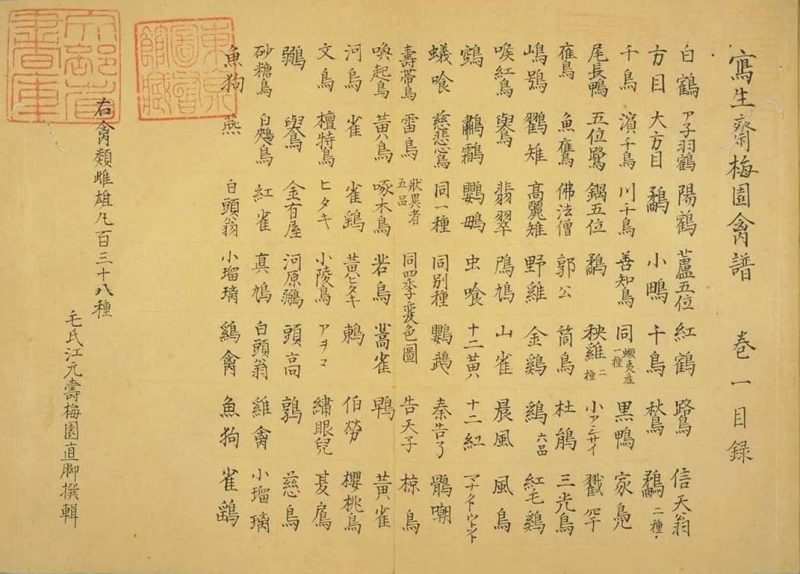 寫生齋梅園禽譜 巻一目録
白鶴 ア子羽鶴 陽鶴 蘆五位 紅鶴 鵅鳥 信天翁
方目 大方目 鷸 小鴫 千鳥 秋鳥 鷸二種
千鳥 濱千鳥 川千鳥 善知鳥 同蝦夷産一種 黒鴨 家鳧
尾長鴨 五位鷺 鍋五位 鷸 秧雞二種 小アジサイ 戴
雁鳥 魚鷹 佛法僧 郭公 筒鳥 杜鵑 三光鳥
嶋鵶 鸐雉 高麗雉 野雞 金鷄 鷄六品 紅毛鷄
喉紅鳥 鸒 翡翠 鳲鳩 山雀 晨風 風鳥
鵼 鸕鷀 鸚鵡 虫喰 十二黄 十二紅
蟻喰 慈悲鳥 同一種 同別種 鸚鵡 秦吉了 鶻嘲
壽帯鳥 雷鳥 狀異者五品 同四季変色圖 告天子 椋鳥
喚起鳥 黄鳥 啄木鳥 岩鳥 蒿雀 鵯 黄雀
河烏 雀 雀鷂 黄ヒタキ 鶇 伯勞 櫻桃鳥
文鳥 檀特鳥 ヒタキ 小陵鳥 アヲコ 繡眼兒
鶸 鸒鳥 金有屋 河原鶸 頭高 鶉 慈鳥
砂糖鳥 白鵐鳥 紅雀 真鳩 白頭翁 雞禽 小瑠璃
魚狗 燕 白頭翁 小瑠璃 鷄禽 魚狗 雀鷂
右禽類雌雄凡百三十八種
毛氏江元壽梅園直脚撰輯
東京圖書館藏
文部省書庫